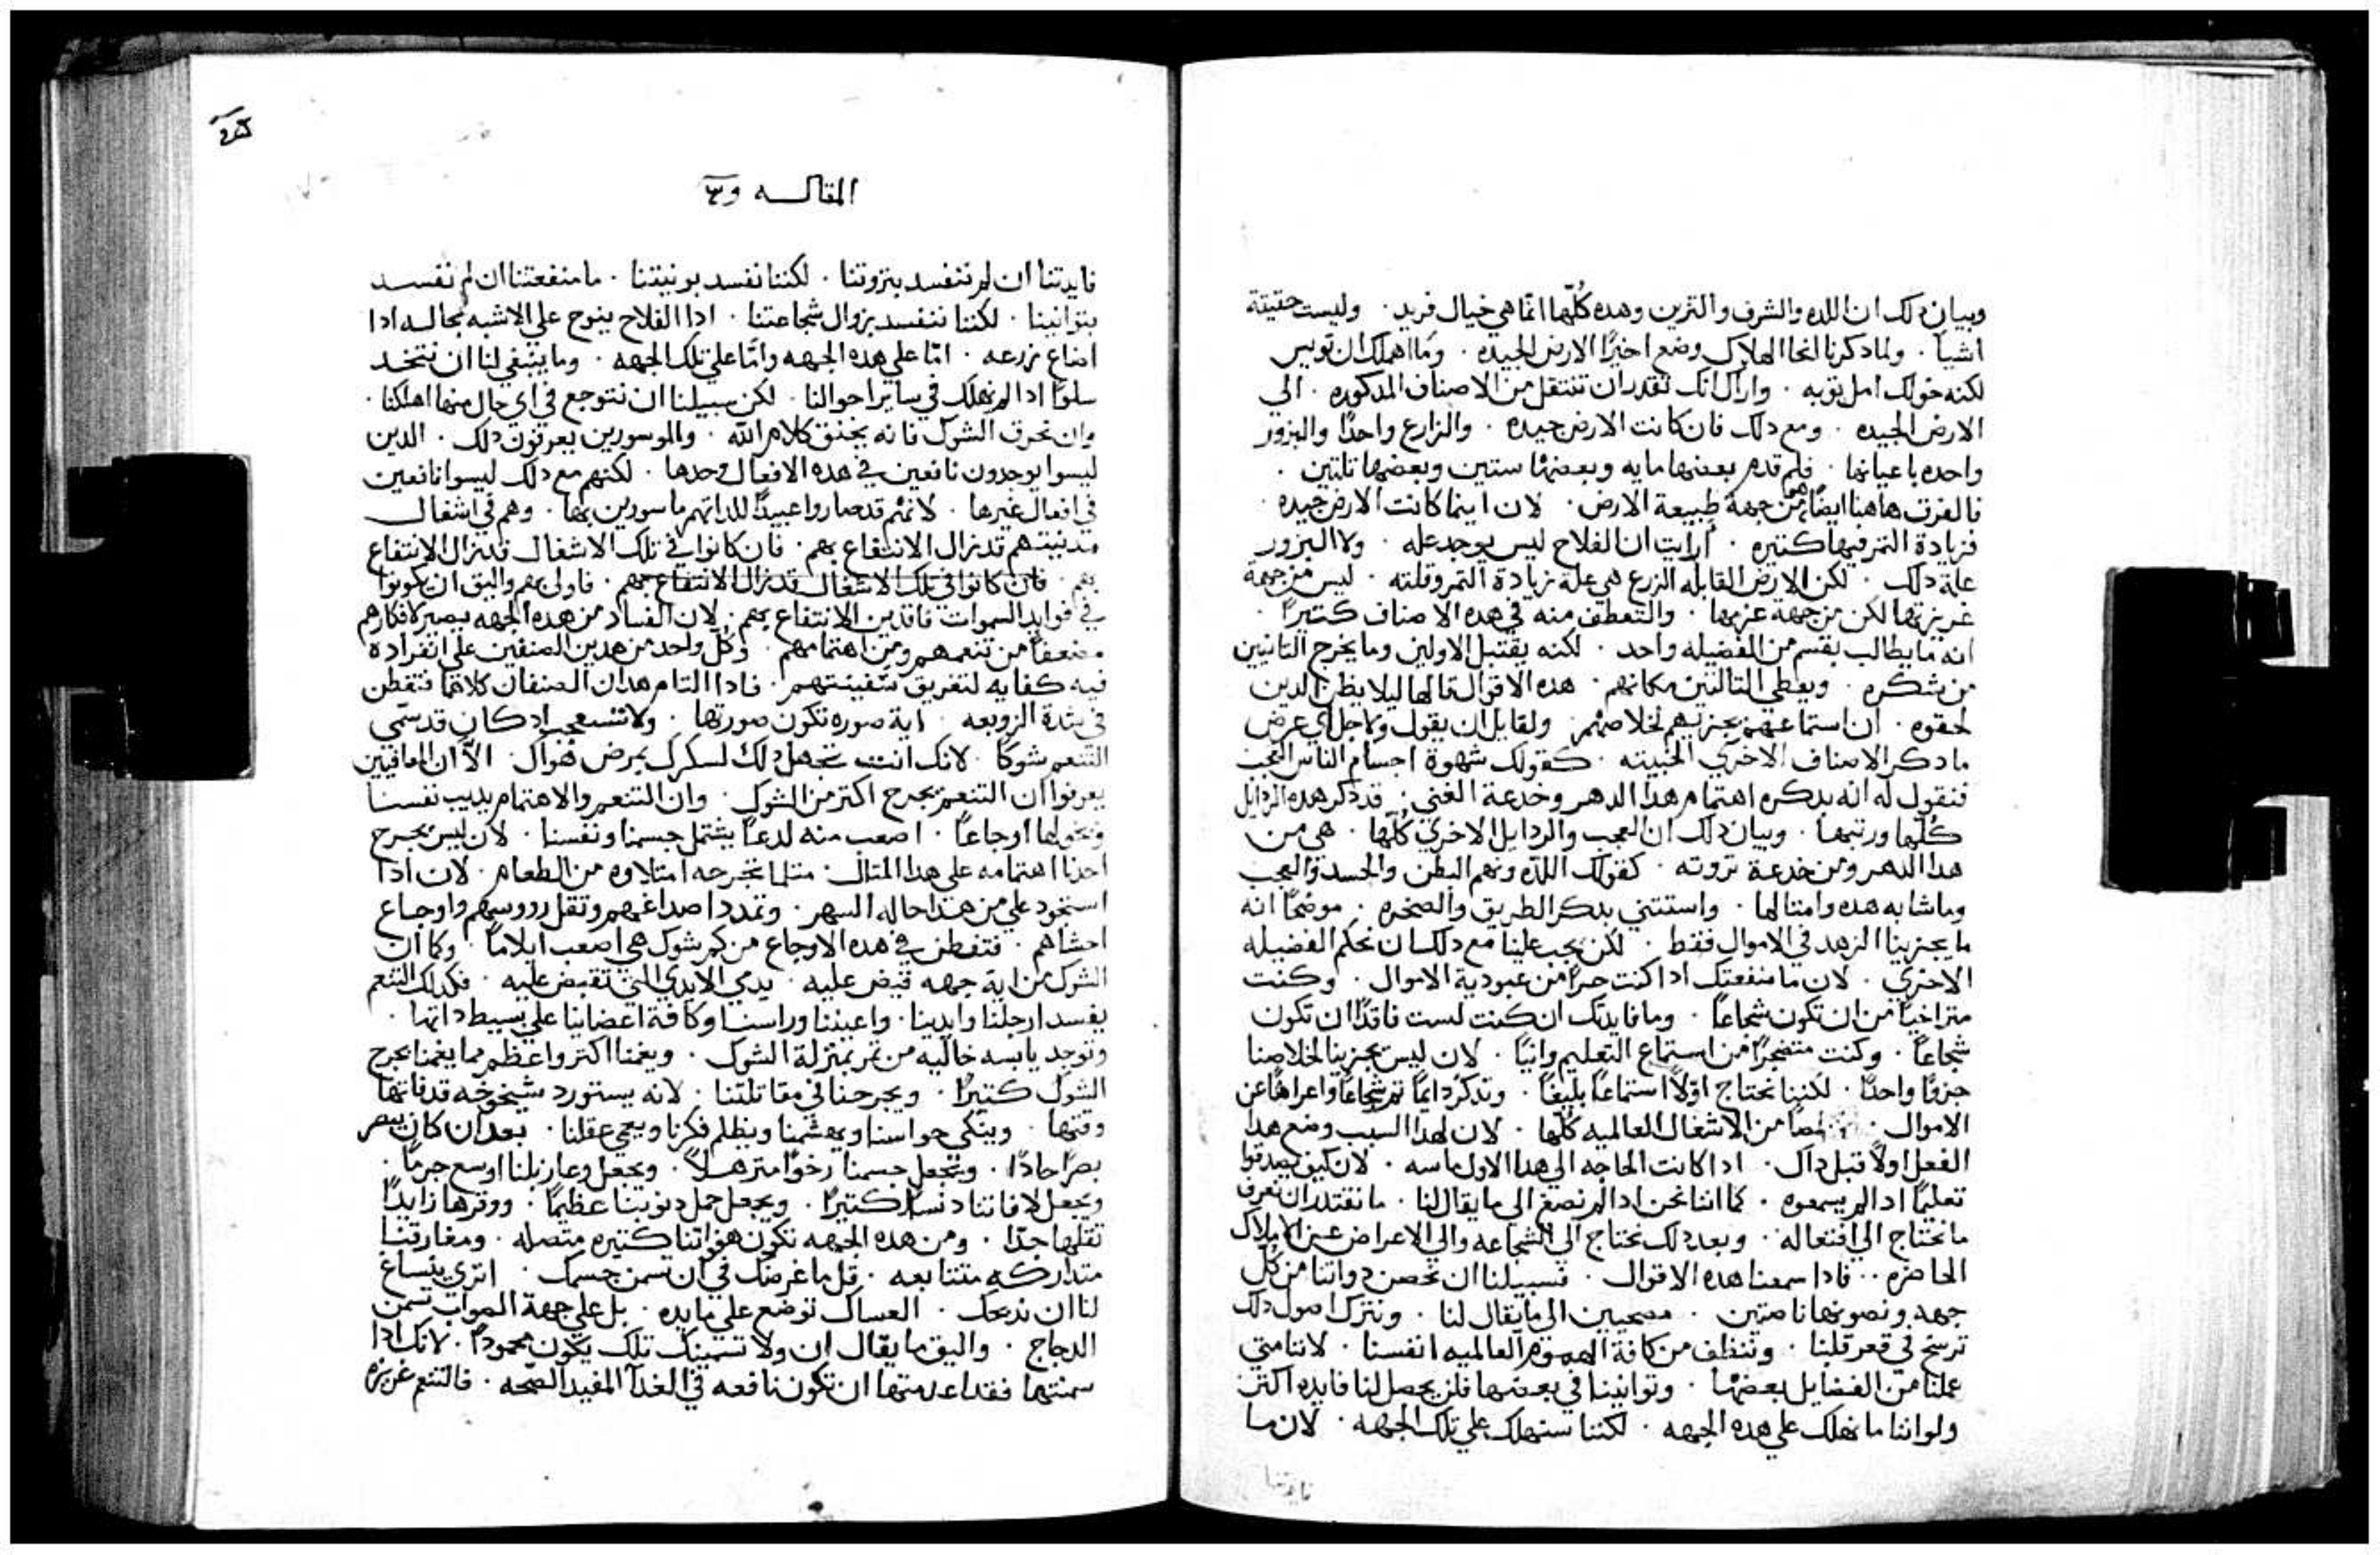 وبيان دلك ان اللده والشرف والترين وهده كُلّها انّما هي خيال فريد ٠ وليست حقيقة
اشيآ ٠ ولما دكرنا انحا الهلاك وضع اخيرًا الارض الجيده ٠ وما اهملك ان تويس
لكنه خولك امل توبه ٠ واراك انك تقدر ان تنتقل من الاصناف المدكوره ٠ الي
الارض الجيده ٠ ومع دلك فان كانت الارض جيده ٠ والزارع واحدًا والبزور
واحده باعيانها ٠ فلم قدم بعضها مايه وبعضها ستين وبعضها تلتين ٠
فالفرق هاهنا ايضًا هو من جهة طبيعة الارض ٠ لان اينما كانت الارض جيده
فزيادة التمر فيها كتيره ٠ ارايت ان الفلاح ليس يوجد عله ٠ ولا البزور
علة دلك ٠ لكن الارض القابله الزرع هي علة زيادة التمر وقلته ٠ ليس من جهة
غريزتها لكن من جهة عزمها ٠ والتعطف منه في هده الاصناف كتيرًا ٠
انه ما يطالب بقسم من الفضيله واحد ٠ لكنه يقتبل الاولين وما يخرج التانيين
من شكره ٠ ويعطي التالتين مكانهم ٠ هده الاقوال قالها ليلا يظن الدين
لحقوه ٠ ان استماعهم يجزيهم لخلاصهم ٠ ولقايل ان يقول ولاجل اي عرض
ما دكر الاصناف الاخري الخبيته ٠ كقولك شهوة اجسام الناس العجب
فنقول له انه بدكره اهتمام هدا الدهر وخدعة الغني ٠ قد دكر هده الردايل
كُلّها ورتبها ٠ وبيان دلك ان العجب والردايل الاخري كُلّها ٠ هي من
هدا الدهر ومن خدعة تروته ٠ كقولك اللده ونهم البطن والحسد والعجب
وما شابه هده وامتالها ٠ واستتني بدكر الطريق والصخره ٠ موضحًا انه
ما يجزينا الزهد في الاموال فقط ٠ لكن يجب علينا مع دلك ان نحكم الفضيله
الاخري ٠ لان ما منفعتك ادا كنت حرًا من عبودية الاموال ٠ وكنت
متراخيًا من ان تكون شجاعًا ٠ وما فايدتك ان كنت لست فاقدًا ان تكون
شجاعًا ٠ وكنت متضجرًا من استماع التعليم وانيًا ٠ لان ليس يجزينا لخلاصنا
جزوًا واحدًا ٠ لكننا نحتاج اوّلًا استماعًا بليغًا ٠ وتدكر دايمًا تم شجاعًا واعراضًا عن
الاموال ٠ من الاشغال العالميه كُلّها ٠ لان لهدا السبب وضع هدا
الفعل اولًا قبل داك ٠ ادا كانت الحاجه الي هدا الاول ماسه ٠ لان كيف يصدقوا
تعليمًا ادا لم يسمعوه ٠ كما اننا نحن ادا لم نصغ الى ما يقال لنا ٠ ما نقتدر ان نعرف
ما نحتاج الي افتعاله ٠ وبعد دلك نحتاج الي الشجاعه والي الاعراض عن الاملاك
الحاضره ٠٠ فادا سمعنا هده الاقوال ٠ فسبيلنا ان نحصن دواتنا من كُل
جهه ونصونها ناصتين ٠ مصحيين الى ما يقال لنا ٠ ونترك اصول دلك
ترسخ في قعر قلبنا ٠ وننظف من كافة الهموم العالميه انفسنا ٠ لاننا متي
عملنا من الفضايل بعضها ٠ وتوانينا في بعضها فلن يحصل لنا فايده اكتر
ولو اننا ما نهلك علي هده الجهه ٠ لكننا سنهلك علي تلك الجهه ٠ لان ما
فايدتنا
المقاله
فايدتنا ان لم ننفسد بتروتنا ٠ لكننا نفسد بونيتنا ٠ ما منفعتنا ان لم نفسد
بتوانينا ٠ لكننا ننفسد بزوال شجاعتنا ٠ ادا الفلاح ينوح علي الاشبه بحاله ادا
اضاع زرعه ٠ امّا علي هده الجهه وامّا علي تلك الجهه ٠ وما ينبغي لنا ان نتخد
سلوًا ادا لم نهلك في ساير احوالنا ٠ لكن سبيلنا ان نتوجع في اي حال منها اهلكنا ٠
وان نحرق الشوك فانه يخنق كلام الله ٠ والموسورين يعرفون دلك ٠ الدين
ليسوا يوجدون نافعين في هده الافعال وحدها ٠ لكنهم مع دلك ليسوا نافعين
في افعال غيرها ٠ لانهم قد صاروا عبيدًا للداتهم ماسورين بها ٠ وهم في اشغال
مدنيتهم قد زال الانتفاع بهم ٠ فان كانوا في تلك الاشغال قد زال الانتفاع
بهم ٠ فان كانوا في تلك الاشغال قد زال الانتفاع بهم ٠ فاولى بهم واليق ان يكونوا
في فوايد السموات فاقدين الانتفاع بهم ٠ لان الفساد من هده الجهه يصير لافكارهم
مضعفًا من تنعمهم ومن اهتمامهم ٠ وكُل واحد من هدين الصنفين علي انفراده
فيه كفايه لتغريق سفينتهم ٠ فادا التام هدان الصنفان كلاهما فتفطن
في شدة الزوبعه ٠ اية صوره تكون صورتها ٠ ولا تستعجب اد كان قد سمّي
التنعم شوكًا ٠ لانك انت تجهل دلك لسكرك بمرض هواك ٠ الاّ ان المعافيين
يعرفوا ان التنعم يجرح اكتر من الشوك ٠ وان التنعم والاهتمام يديب نفسنا
ويخولها اوجاعًا ٠ اصعب منه لدعًا يشتمل جسمنا ونفسنا ٠ لان ليس يجرح
احدنا اهتمامه على هدا المتال ٠ متلما يجرحه امتلاوه من الطعام ٠ لان ادا
استحود علي من هدا حاله السهر ٠ وتمدد اصداغهم وتقل رووسهم واوجاع
احشاهم ٠ فتفطن في هده الاوجاع من كم شوك هي اصعب ايلامًا ٠ وكما ان
الشوك من اية جهه قبض عليه ٠ يدمي الايدي التي تقبض عليه ٠ فكدلك التنعم
يفسد ارجلنا وايدينا ٠ واعيننا وراسنا وكافة اعضاينا علي بسيط داتها ٠
وتوجد يابسه خاليه من تمر بمنزلة الشوك ٠ ويغمنا اكتر واعظم مما يغمنا بجرح
الشوك كتيرًا ٠ ويجرحنا في مقاتلتنا ٠ لانه يستورد شيخوخه قد فاتها
وقتها ٠ وينكي حواسنا ويهشمنا ويظلم فكرنا ويعمي عقلنا ٠ بعد ان كان يبصر
بصرًا حادًا ٠ ويجعل جسمنا رخوًا مترهلًا ٠ ويجعل وعا زبلنا اوسع جرمًا ٠
ويجعل لافاتنا دنسًا كتيرًا ٠ ويجعل حمل دنوبنا عظيمًا ٠ ووقرها زايدًا
تقلها جدًا ٠ ومن هده الجهه تكون هفواتنا كتيره متصله ٠ ومغارقتنا
متداركه متتابعه ٠ قل ما غرضك في ان تسمن جسمك ٠ اترى ينساغ
لنا ان ندبحك ٠ العساك توضع علي مايده ٠ بل علي جهة الصواب تسمن
الدجاج ٠ واليق ما يقال ان ولا تسمينك تلك يكون محمودًا ٠ لانك ادا
سمنتها فقد اعدمتها ان تكون نافعه في الغدآ المفيد الصحه ٠ فالتنعم غزيره